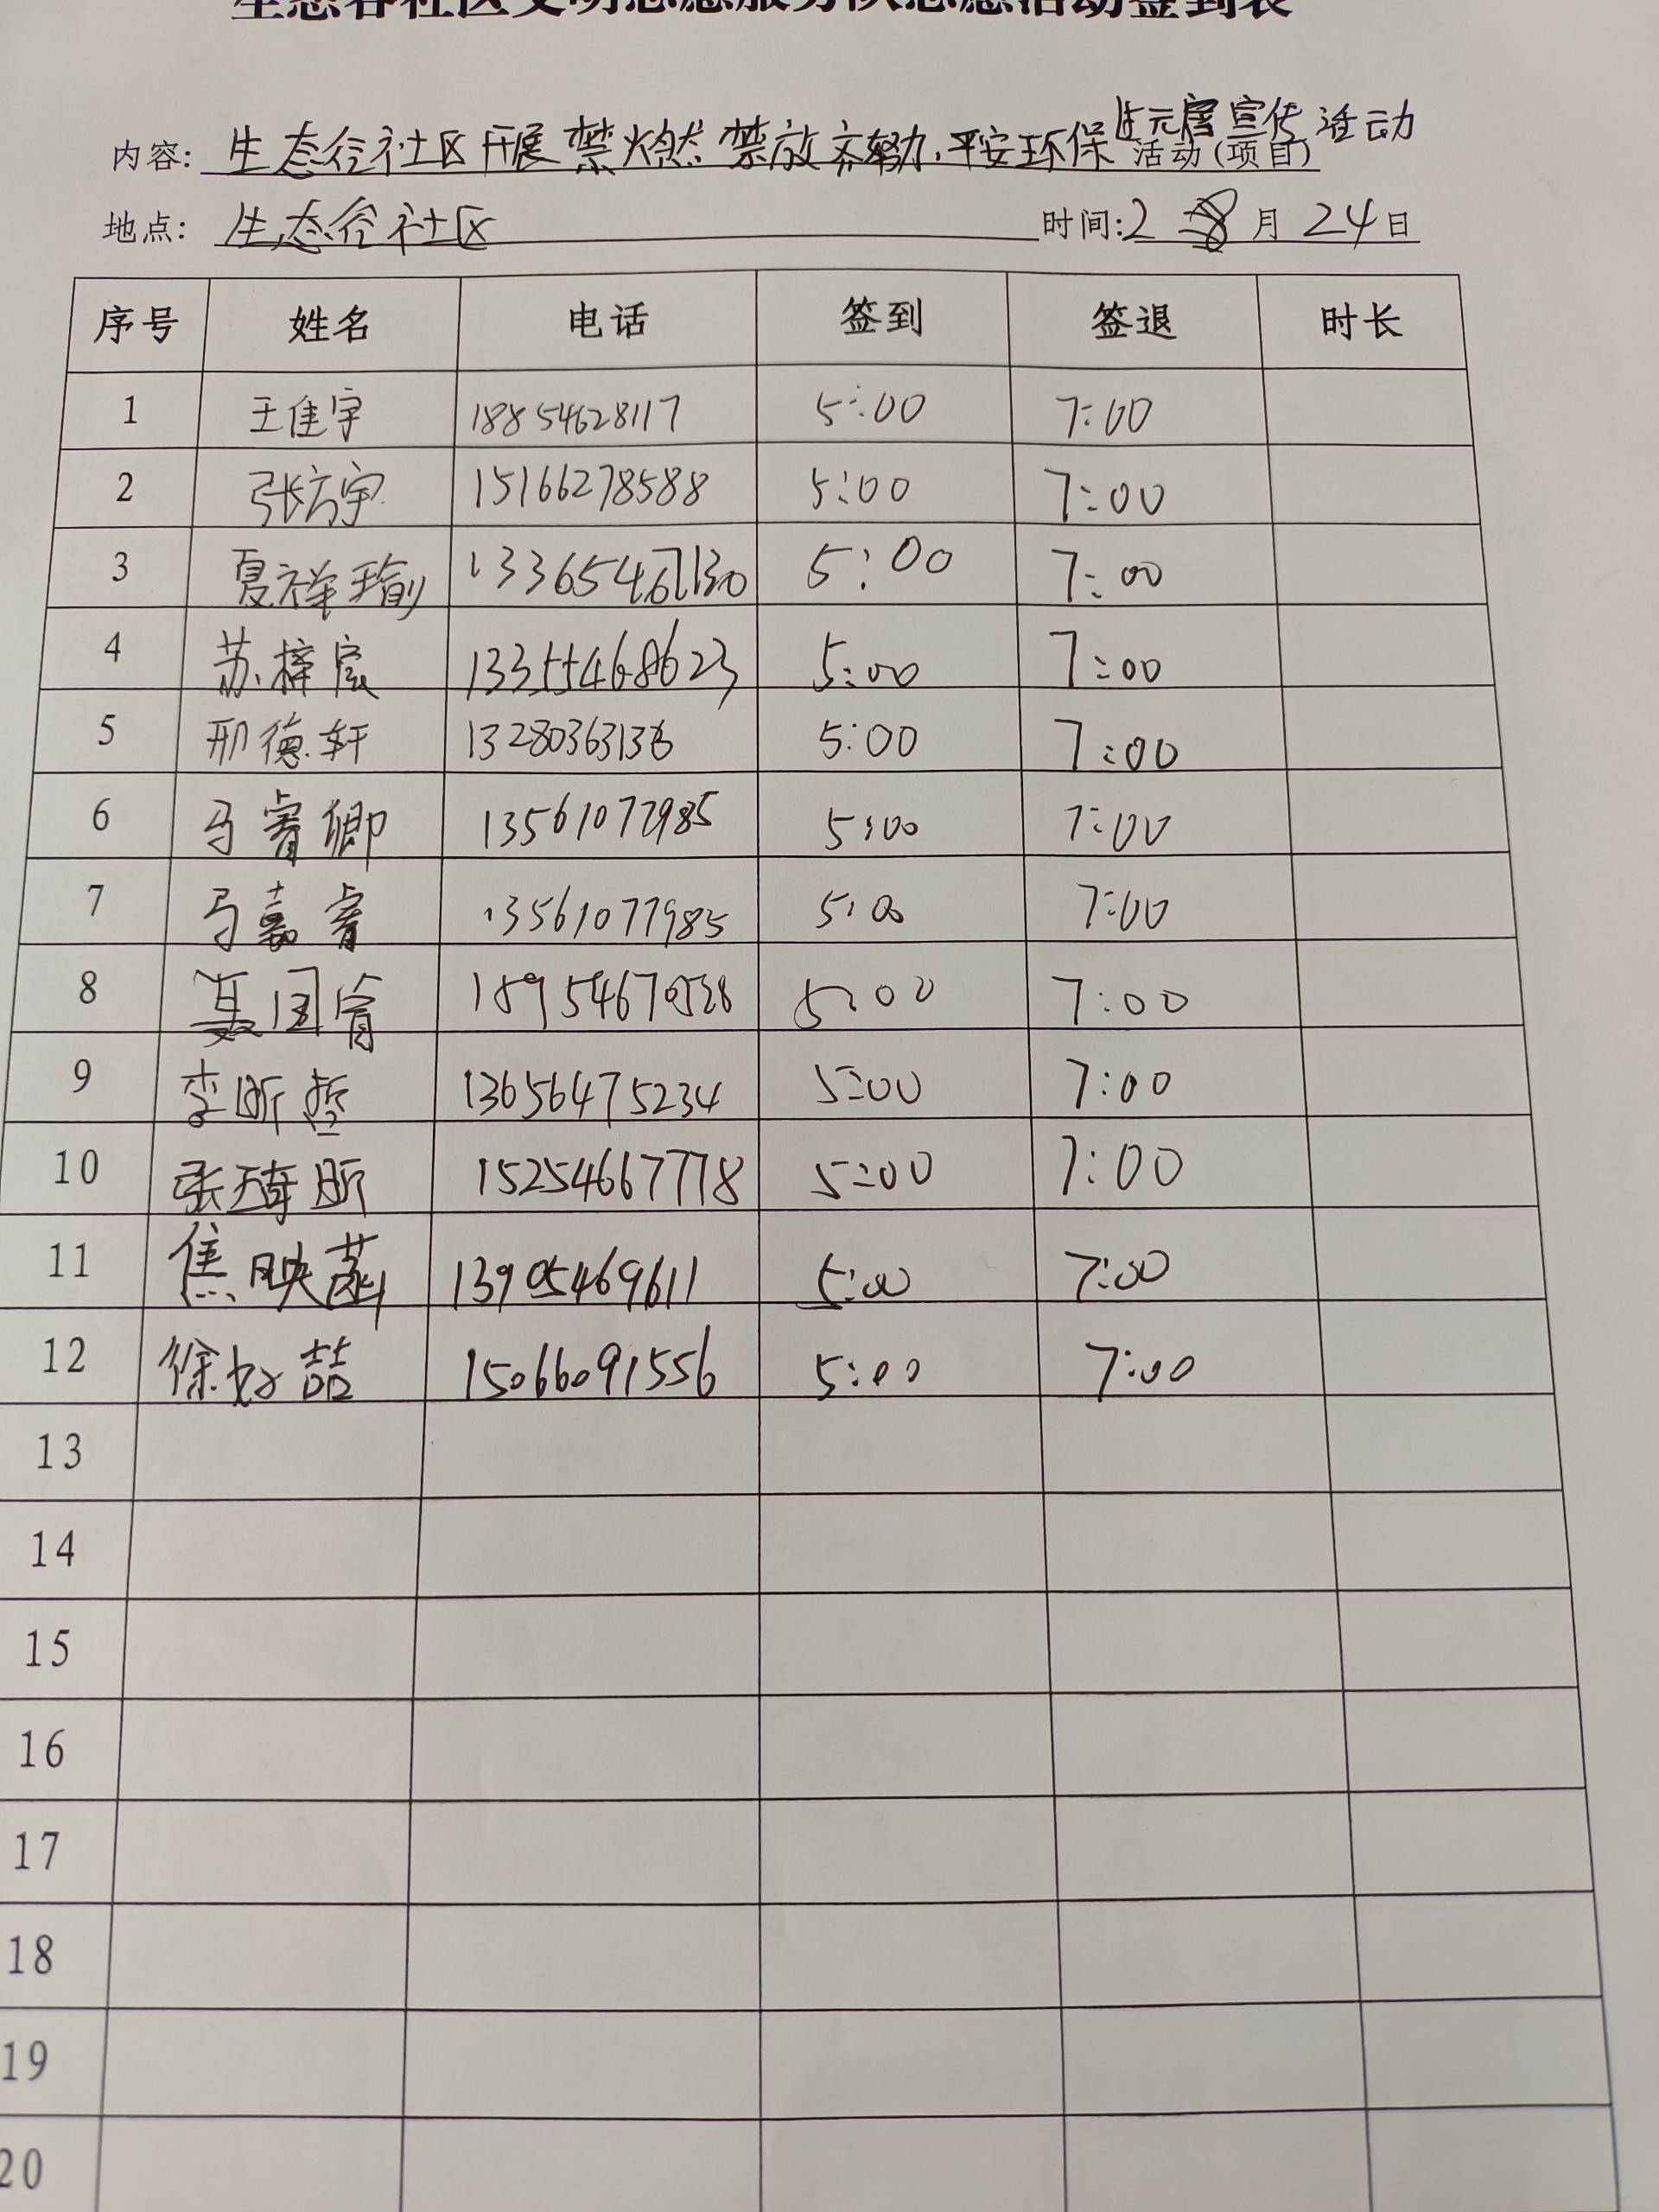 生态谷社区文明志愿服务队志愿活动签到表
内容: 生态谷社区开展禁燃禁放齐努力,平安环保过元宵宣传活动 活动(项目)
地点: 生态谷社区 时间: 2月24日
序号 姓名 电话 签到 签退 时长
1 王佳宇 18854628117 5:00 7:00
2 张方宇 15166278588 5:00 7:00
3 夏祥瑜 13365467130 5:00 7:00
4 苏梓宸 13355468623 5:00 7:00
5 邢德轩 5:00 7:00
6 马睿卿 13561077985 5:00 7:00
7 马嘉睿 13561077985 5:00 7:00
8 聂国睿 5:00 7:00
9 李昕哲 13656475234 5:00 7:00
10 张琦昕 15254667778 5:00 7:00
11 焦映菡 13905469611 5:00 7:00
12 徐好喆 15066091556 5:00 7:00
13
14
15
16
17
18
19
20